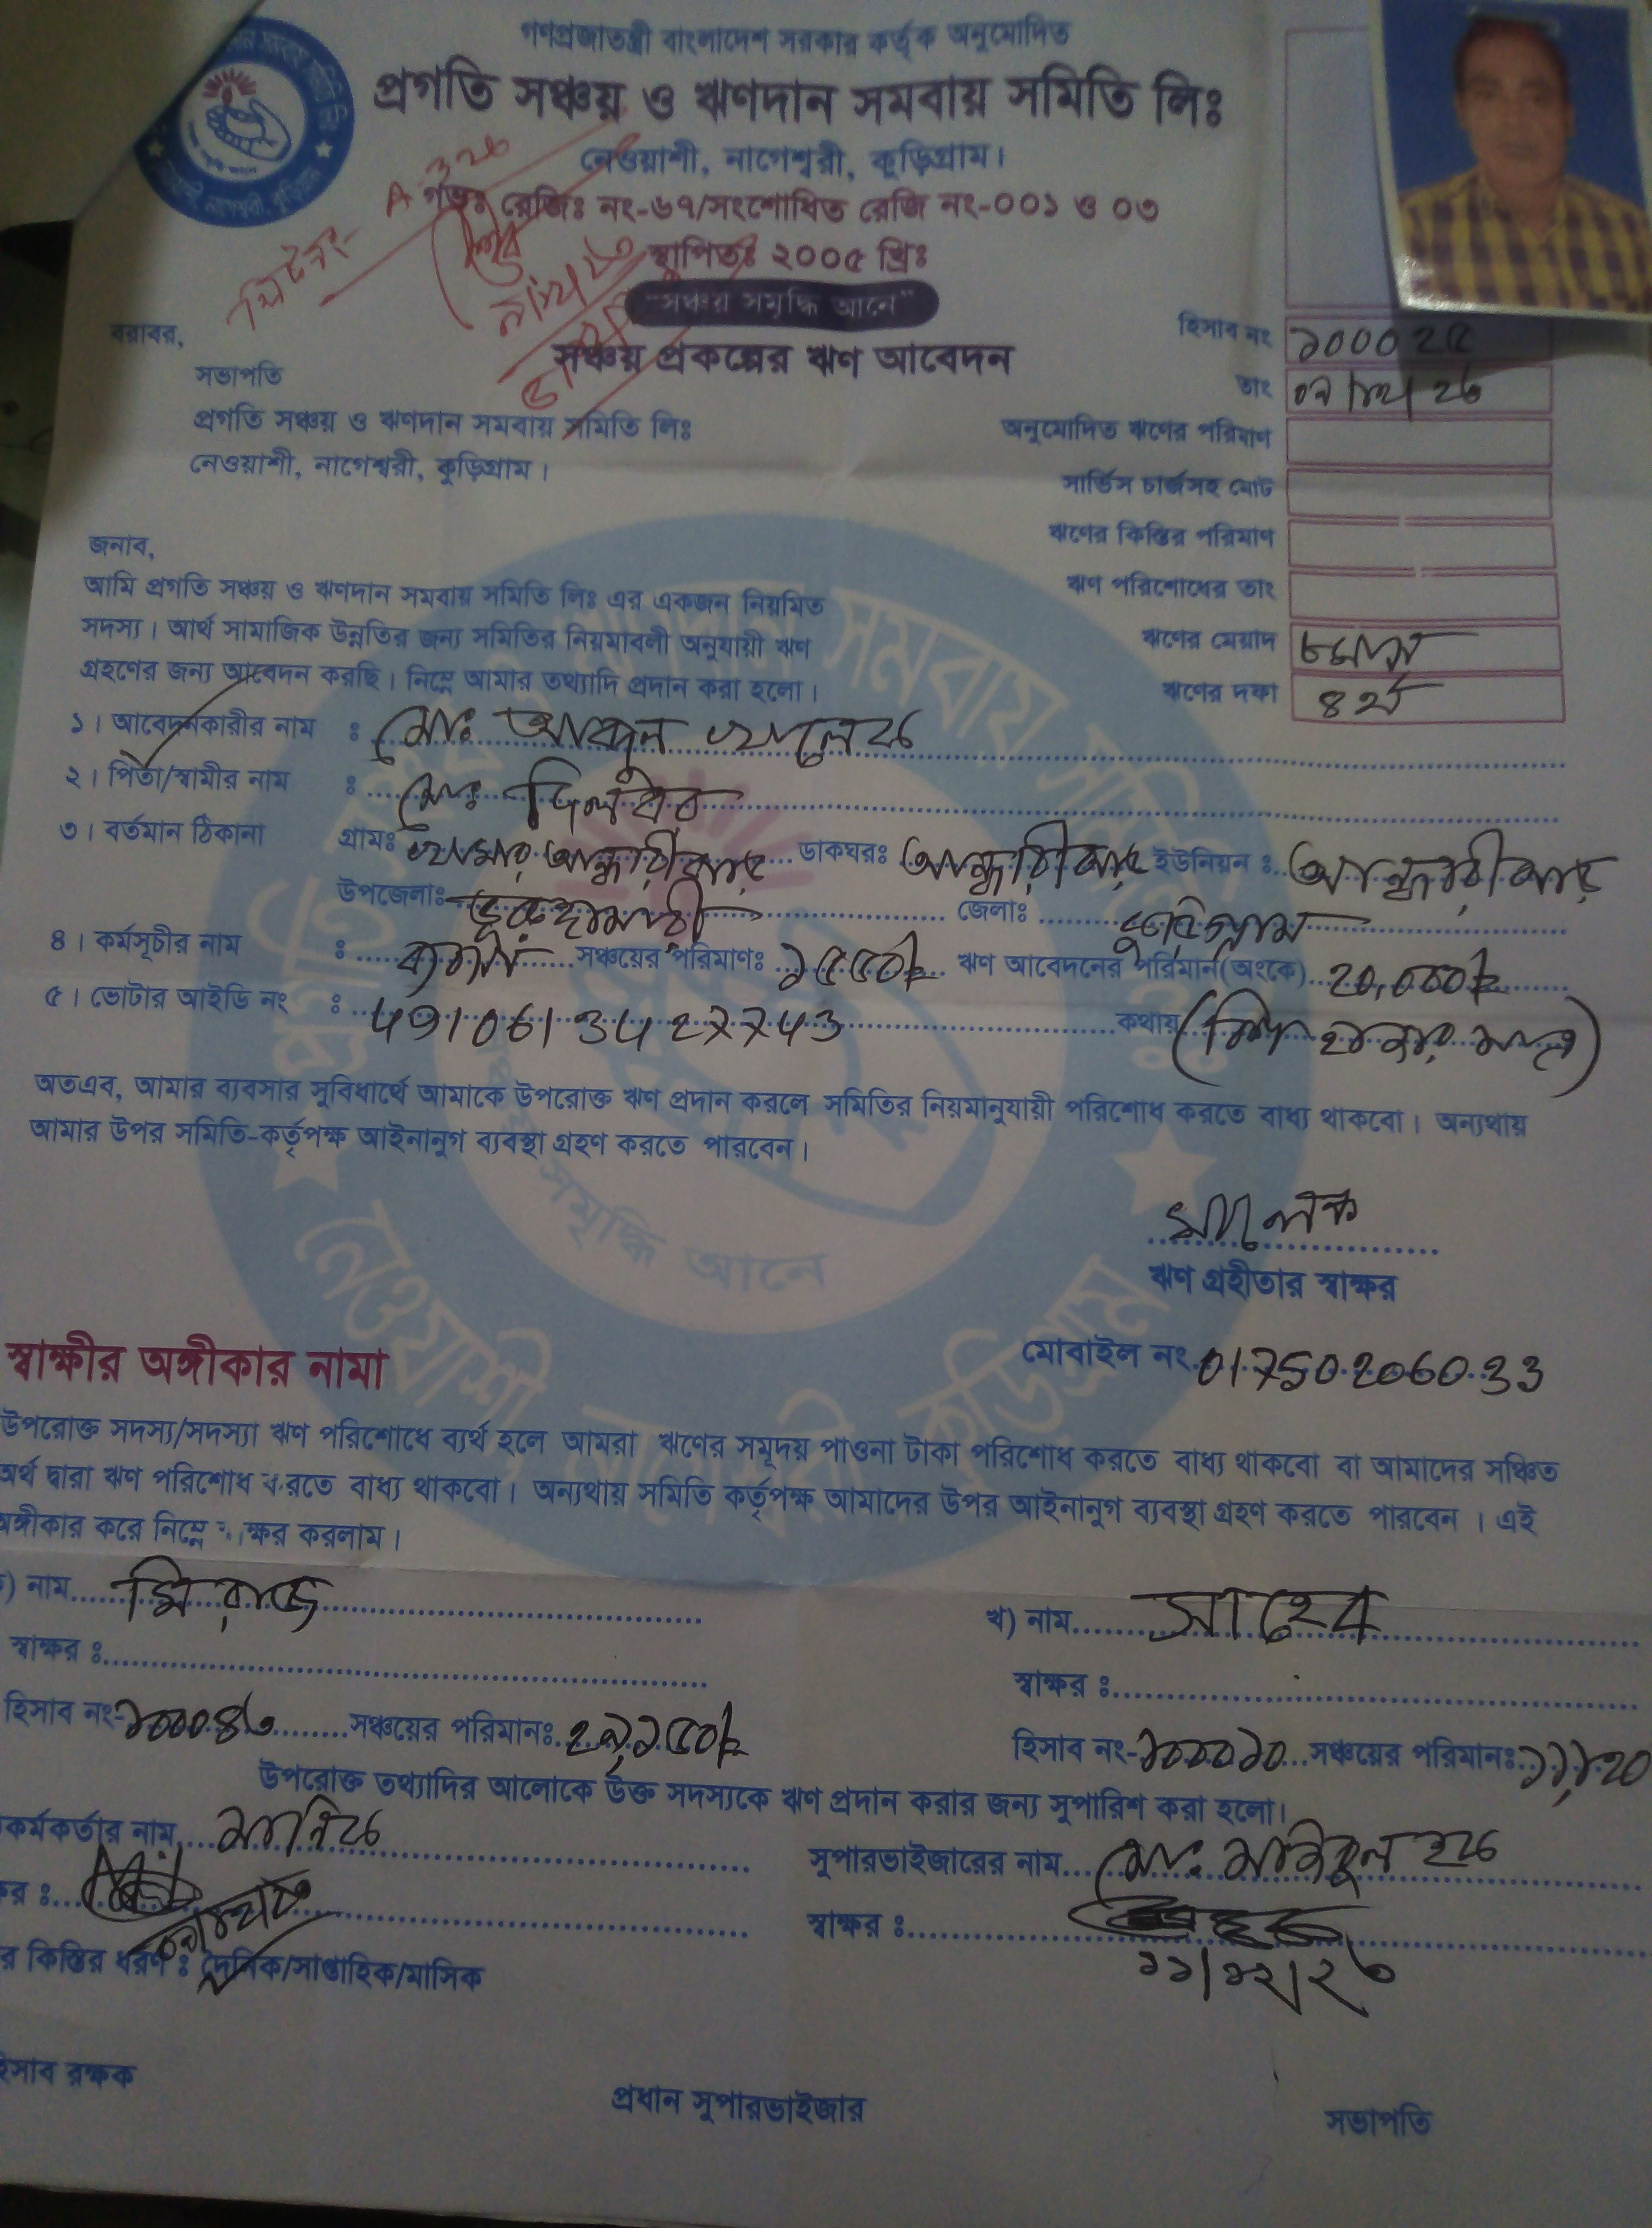 গণপ্রজাতন্ত্রী বাংলাদেশ সরকার কর্তৃক অনুমোদিত
প্রগতি সঞ্চয় ও ঋণদান সমবায় সমিতি লিঃ
নেওয়াশী, নাগেশ্বরী, কুড়িগ্রাম।
গভঃ রেজিঃ নং-৬৭/সংশোধিত রেজি নং-০০১ ও ০৩
স্থাপিতঃ ২০০৫ খ্রিঃ
"সঞ্চয় সমৃদ্ধি আনে"
সঞ্চয় প্রকল্পের ঋণ আবেদন
হিসাব নং ১০০০২৫
তাং ০৭/১২/২৩
অনুমোদিত ঋণের পরিমাণ
সার্ভিস চার্জসহ মোট
ঋণের কিস্তির পরিমাণ
ঋণ পরিশোধের তাং
ঋণের মেয়াদ ৮মাস
ঋণের দফা ৪র্থ
বরাবর,
সভাপতি
প্রগতি সঞ্চয় ও ঋণদান সমবায় সমিতি লিঃ
নেওয়াশী, নাগেশ্বরী, কুড়িগ্রাম।
জনাব,
আমি প্রগতি সঞ্চয় ও ঋণদান সমবায় সমিতি লিঃ এর একজন নিয়মিত
সদস্য। আর্থ সামাজিক উন্নতির জন্য সমিতির নিয়মাবলী অনুযায়ী ঋণ
গ্রহণের জন্য আবেদন করছি। নিম্নে আমার তথ্যাদি প্রদান করা হলো।
১। আবেদনকারীর নাম : মোঃ আব্দুল খালেক
২। পিতা/স্বামীর নাম : মোঃ দিলবর
৩। বর্তমান ঠিকানা গ্রামঃ খামার আন্ধারীঝাড় ডাকঘরঃ আন্ধারীঝাড় ইউনিয়ন : আন্ধারীঝাড়
উপজেলাঃ ভূরুঙ্গামারী জেলাঃ কুড়িগ্রাম
৪। কর্মসূচীর নাম : ব্যবসা সঞ্চয়ের পরিমাণঃ ১৫৫০/= ঋণ আবেদনের পরিমান(অংকে) ২০,০০০/=
৫। ভোটার আইডি নং : 4910613427743 কথায় (বিশ হাজার মাত্র)
অতএব, আমার ব্যবসার সুবিধার্থে আমাকে উপরোক্ত ঋণ প্রদান করলে সমিতির নিয়মানুযায়ী পরিশোধ করতে বাধ্য থাকবো। অন্যথায়
আমার উপর সমিতি-কর্তৃপক্ষ আইনানুগ ব্যবস্থা গ্রহণ করতে পারবেন।
খালেক
ঋণ গ্রহীতার স্বাক্ষর
মোবাইল নং 01750206033
স্বাক্ষীর অঙ্গীকার নামা
উপরোক্ত সদস্য/সদস্যা ঋণ পরিশোধে ব্যর্থ হলে আমরা ঋণের সমূদয় পাওনা টাকা পরিশোধ করতে বাধ্য থাকবো বা আমাদের সঞ্চিত
অর্থ দ্বারা ঋণ পরিশোধ করতে বাধ্য থাকবো। অন্যথায় সমিতি কর্তৃপক্ষ আমাদের উপর আইনানুগ ব্যবস্থা গ্রহণ করতে পারবেন । এই
অঙ্গীকার করে নিম্নে স্বাক্ষর করলাম।
নাম মিরাজ খ) নাম সাহেব
স্বাক্ষর : স্বাক্ষর :
হিসাব নং-১০০০৪৩ সঞ্চয়ের পরিমানঃ ২৭,১৫০/= হিসাব নং-১০০০১০ সঞ্চয়ের পরিমানঃ
উপরোক্ত তথ্যাদির আলোকে উক্ত সদস্যকে ঋণ প্রদান করার জন্য সুপারিশ করা হলো।
কর্মকর্তার নাম মানিক সুপারভাইজারের নাম মোঃ মাইদুল হক
স্বাক্ষর :
১১/১২/২৩
কিস্তির ধরণ : দৈনিক/সাপ্তাহিক/মাসিক
হিসাব রক্ষক প্রধান সুপারভাইজার সভাপতি